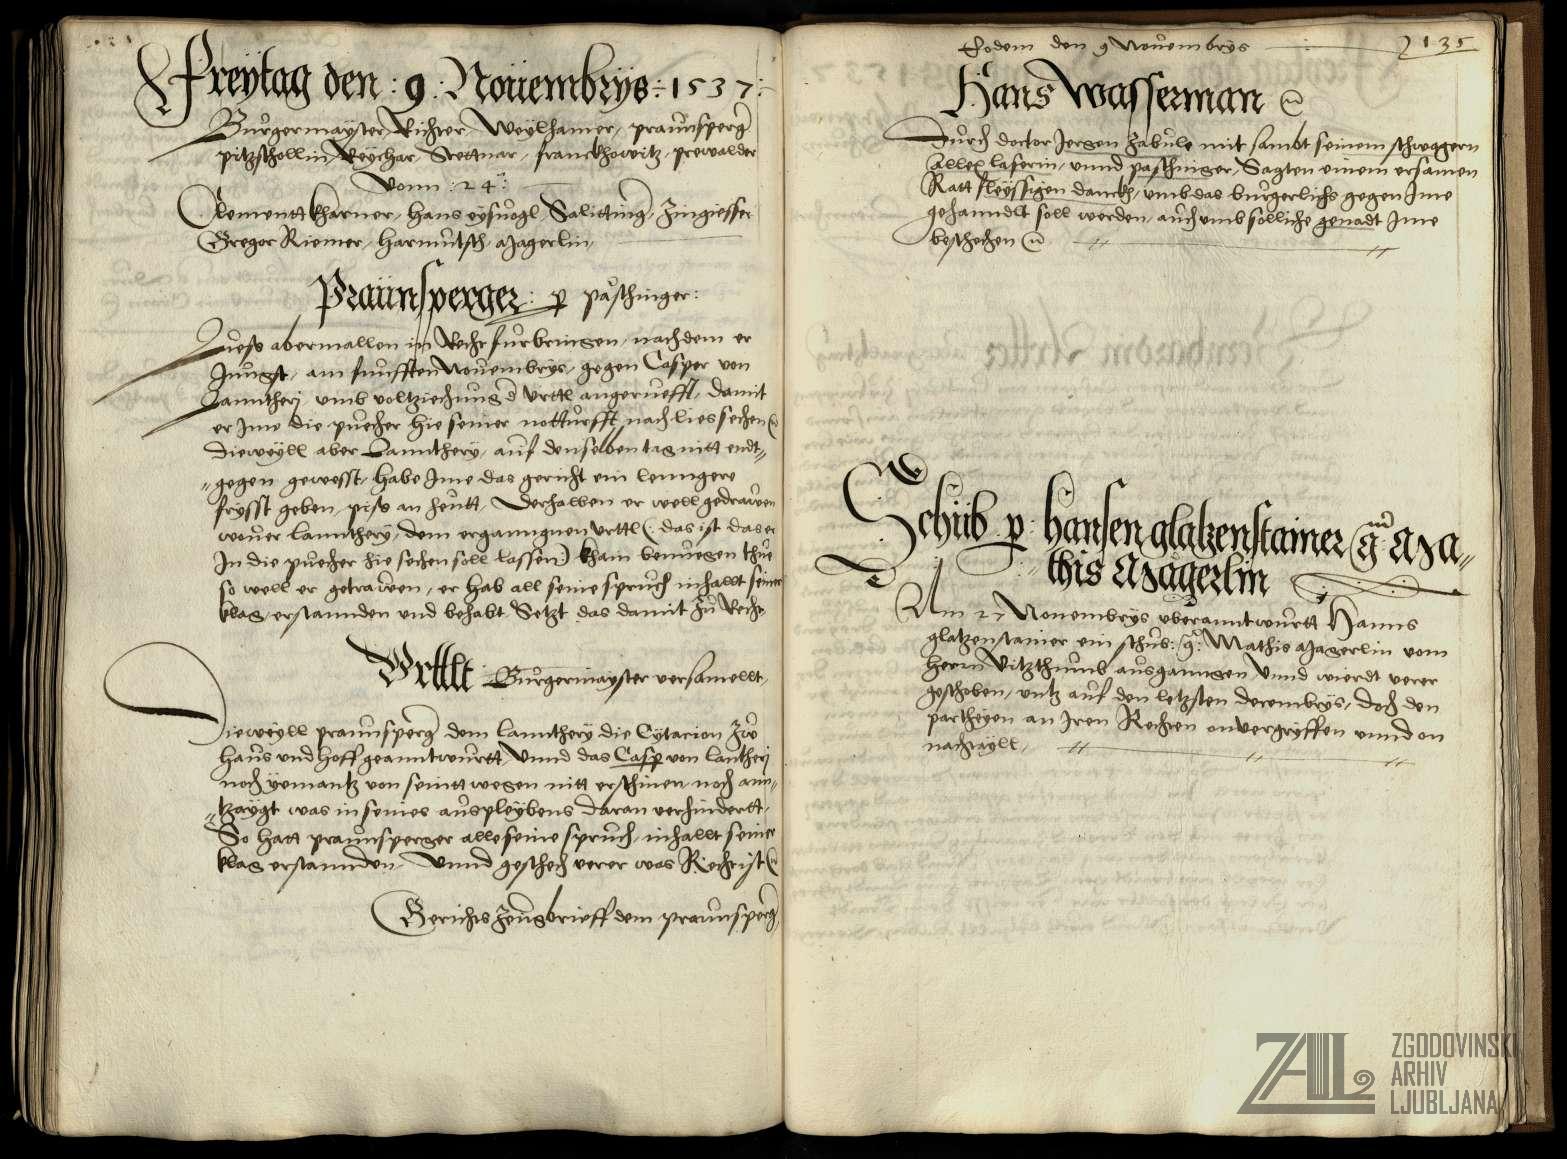 Freÿtag den : 9 : Nouembrÿs : 1537 :
Burgermaÿster, Richter, Weÿlhamer, praunsperg
pitzschollin, Reÿchar, Stettnar, franckhowitz, prewalder
Vonn : 24 :
Clementt kharner, Hans eÿsnogl, Salitting, Zingiesser
Gregor Riemer, Harmutsch, Magerlin,
Praunsperger : p paschinger :
Luess abermallen in Recht furbringen, nachdem er
Jungst, am funfften Nouembrÿs, gegen Casper von
Lanntherj vmb voltziechung d Vrttl angerueffft, damit
er Jme die puecher hie seiner notturfft nach lies sechen
dieweÿll aber Lannthery, auf denselben tag nitt endt„
„gegen gewesst, habe Jme das gericht ein lenngere
frÿsst geben, piss an heutt, derhalben er well gedrawen
wouer lannthery, dem ergangnen vrttl (: das ist das er
In die puecher hie sechen soll lassen) kham benuegen thue
so well er getrawen, er hab all seine spruch inhallt seiner
klag, erstannden vnd behabt, Setzt das damit zu Recht
Vrttlt : Burgermaÿster versamellt,
Dieweÿll praunsperg dem lannthery die Cÿtacion zw
haus vnd hoff geanntwurtt Vnnd das Casp von lantherj
noch ÿemantz von seintt wegen nitt erschinen noch ann„
„tzaÿgt was in seines auspleÿbens daran verhindertt,
So hatt praunsperger alle seine spruch, inhallt seiner
klag erstannden, Vnnd geschech verer was Recht ist
Gerichts Zeugbrieff dem praunsperg
Eodem den 9 Nouembrÿs
135
Hans Wasserman
Durch doctor Jorgen Zabule mit sambt seinem schwagern
Allex laserin, vnnd paschinger, Sagten einem ersamen
Ratt fleÿssigen danckh, vmb das burgerlichs gegen Jme
gehanndlt soll werden, auch vmb solliche genadt Jme
beschechen
Schub p : hansen glatzenstainer g Ma„
this Magerlin
Am 27 Nouembrÿs vberanntwurtt Hanns
glatzenstainer ein schub : g : Mathis Magerlin vom
herrn Vitzthumb ausganngen Vnnd wierdt verer
geschoben, vntz auf den letzsten decembrÿs, doch den
partheÿen an Jren Rechten onvergrÿffen vnnd on
nachtaÿll,
ZAL
ZGODOVINSKI
ARHIV
LJUBLJANA